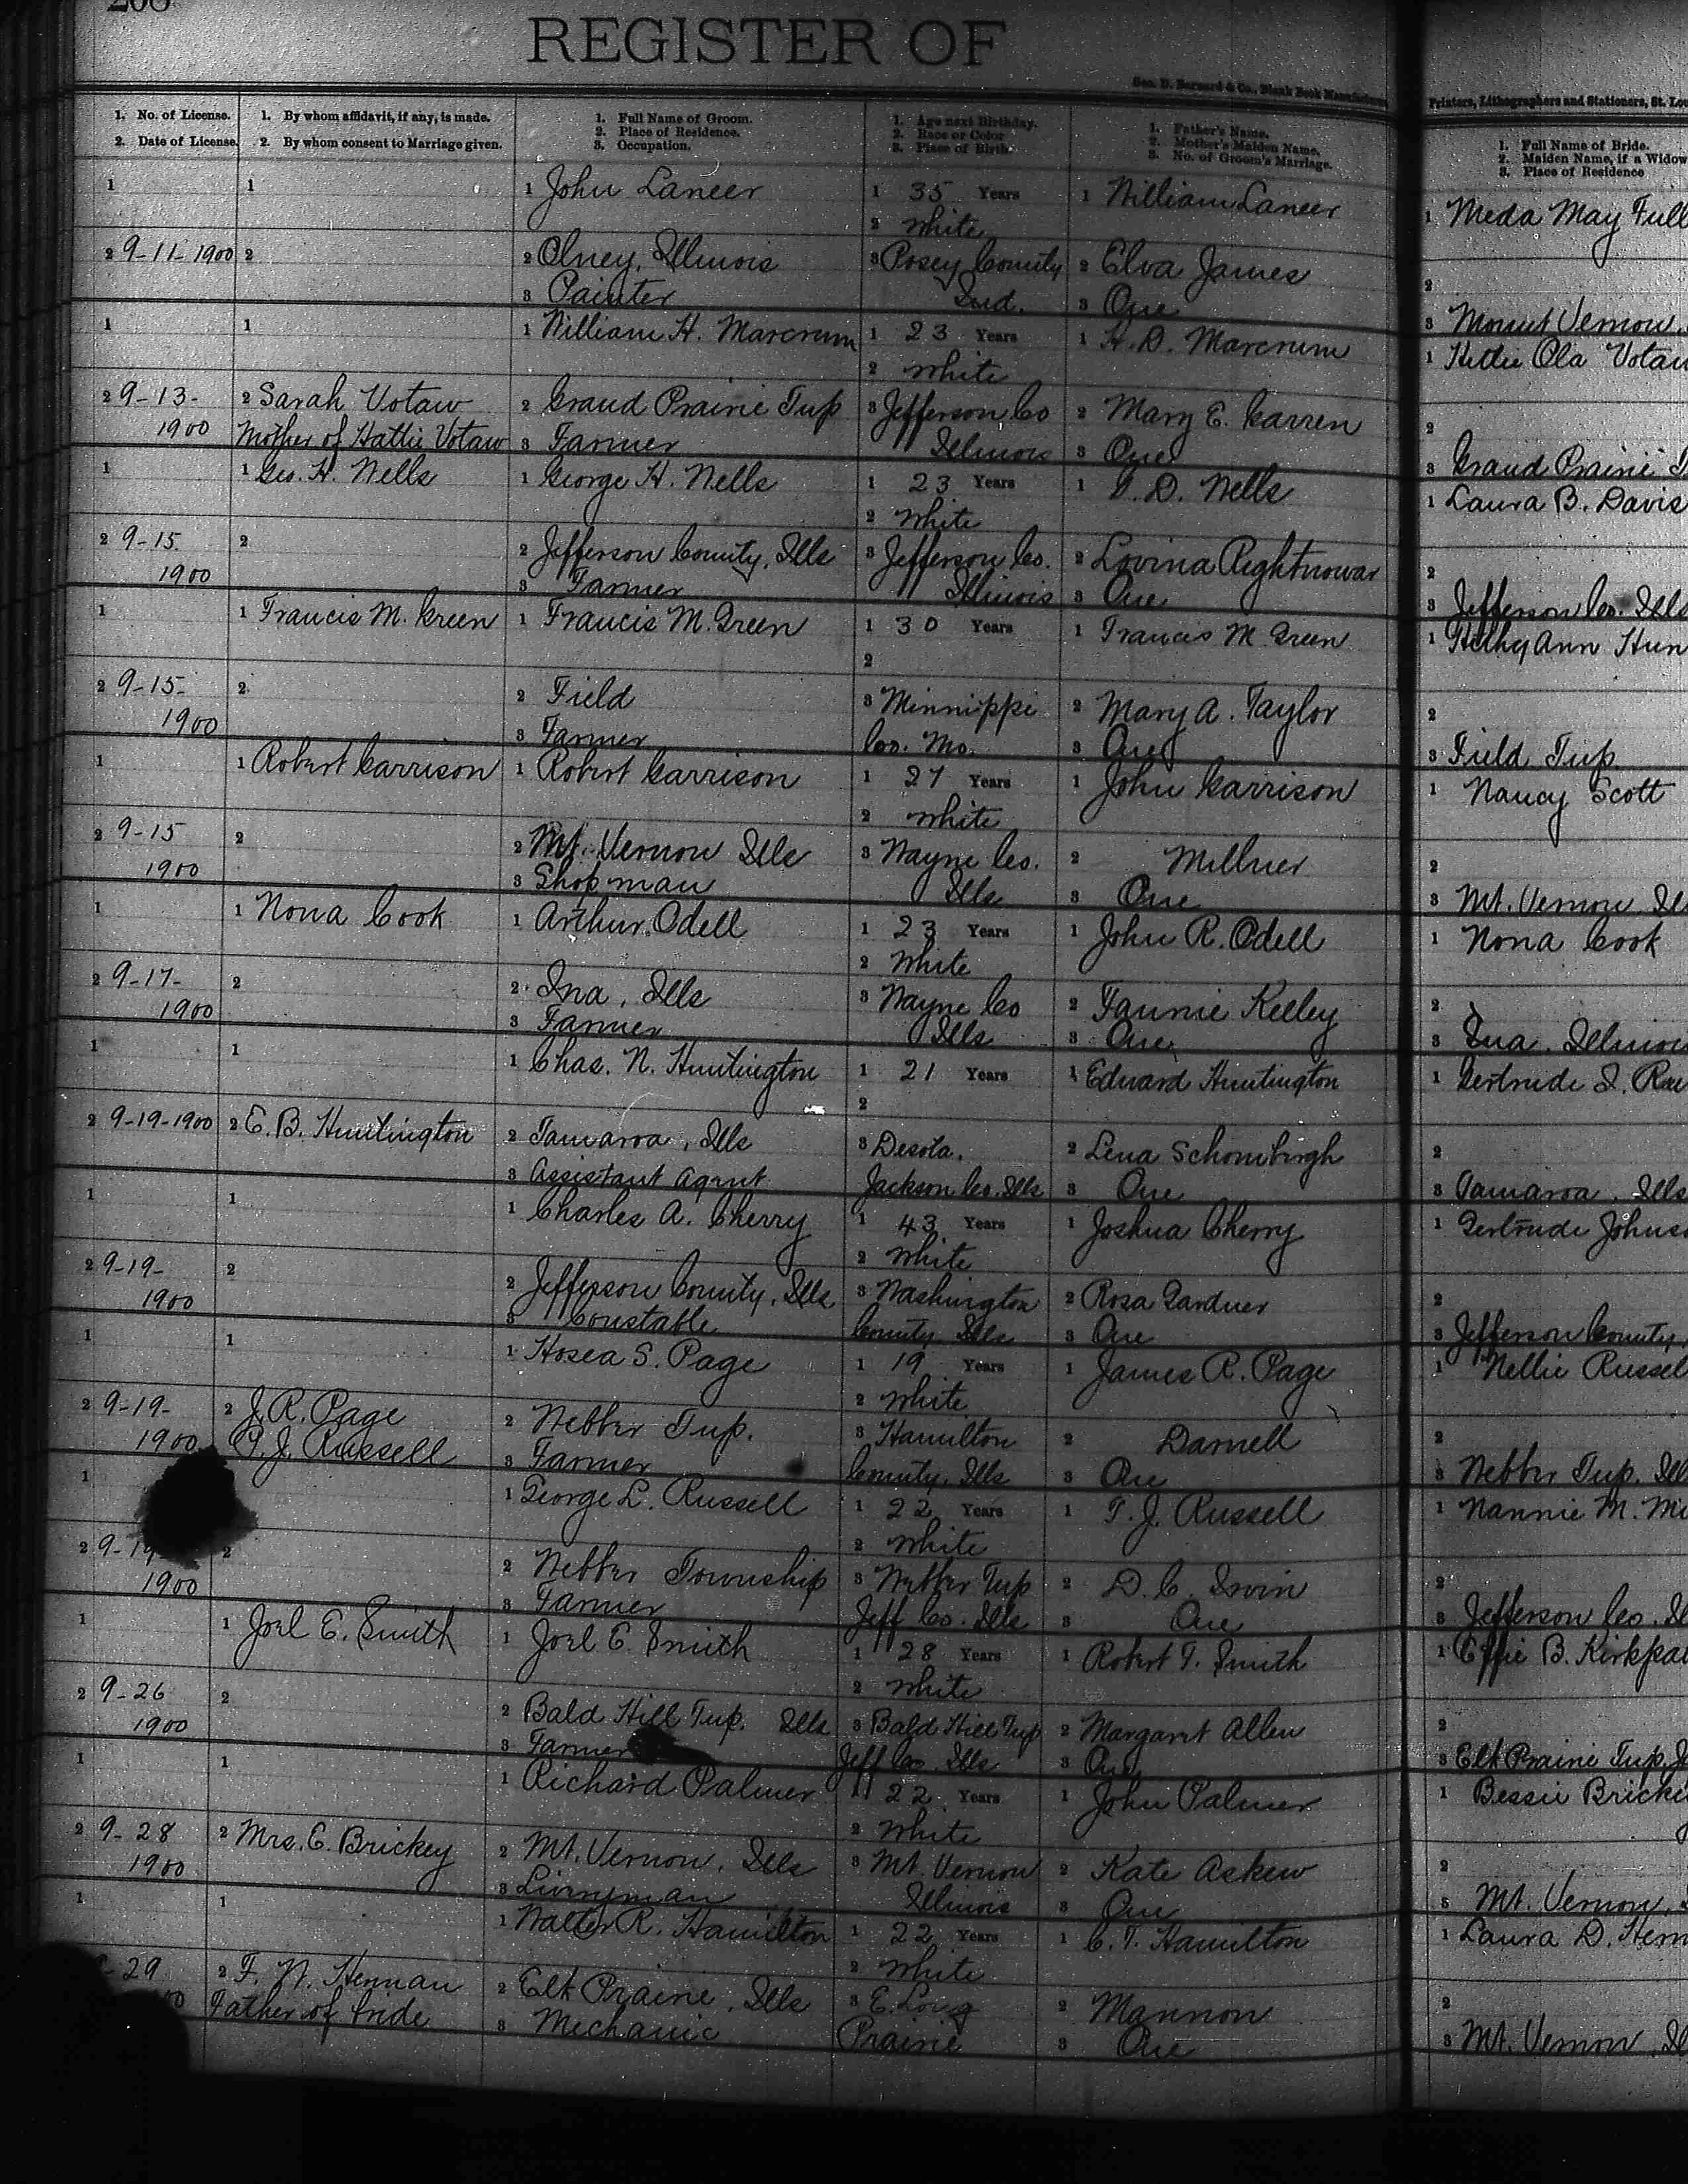 208
REGISTER OF
Geo. D. Barnard & Co., Blank Book Manufacturers
Printers, Lithographers and Stationers, St. Lou
1. No. of License.
2. Date of License.
1. By whom affidavit, if any, is made.
2. By whom consent to Marriage given.
1. Full Name of Groom.
2. Place of Residence.
3. Occupation.
1. Age next Birthday.
2. Race or Color
3. Place of Birth.
1. Father's Name.
2. Mother's Maiden Name.
3. No. of Groom's Marriage.
1. Full Name of Bride.
2. Maiden Name, if a Widow
3. Place of Residence
1
1
1 John Lancer
1 35 Years
1 William Lancer
1 Meda May Full
2 White
2 9-11-1900
2
2 Olney, Illinois
3 Posey County
2 Elva James
2
3 Painter
Ind.
3 One
3 Mount Vernon,
1
1
1 William H. Marcrum
1 23 Years
1 H. D. Marcrum
1 Hettie Ola Votaw
2 White
2 9-13-
2 Sarah Votaw
2 Grand Prairie Twp
3 Jefferson Co
2 Mary E. Garren
2
1900
Mother of Hattie Votaw
3 Farmer
Illinois
3 One
3 Grand Prairie T
1
1 Geo. H. Wells
1 George H. Wells
1 23 Years
1 G. D. Wells
1 Laura B. Davis
2 White
2 9-15
2
2 Jefferson County, Ills
3 Jefferson Co.
2 Lovina Rightnowar
2
1900
3 Farmer
Illinois
3 One
3 Jefferson Co. Ills
1
1 Francis M. Green
1 Francis M. Green
1 30 Years
1 Francis M. Green
1 Ann Hun
2
2 9-15-
2
2 Field
3 Minnippi
2 Mary A. Taylor
2
1900
3 Farmer
Co. Mo.
3 One
3 Field Twp
1
1 Robert Garrison
1 Robert Garrison
1 27 Years
1 John Garrison
1 Nancy Scott
2 White
2 9-15
2
2 Mt. Vernon Ills
3 Wayne Co.
2 Millner
2
1900
3 Shopman
Ills
3 One
3 Mt. Vernon, Il
1
1 Nona Cook
1 Arthur Odell
1 23 Years
1 John R. Odell
1 Nona Cook
2 White
2 9-17-
2
2 Ina, Ills
3 Wayne Co
2 Fannie Kelley
2
1900
3 Farmer
Ills
3 One
3 Ina, Illinois
1
1
1 Chas. N. Huntington
1 21 Years
1 Edward Huntington
1 Gertrude I. Roe
2
2 9-19-1900
2 E. B. Huntington
2 Tamaroa, Ills
3 Desota,
2 Lena Schomburgh
2
3 Assistant Agent
Jackson Co. Ills
3 One
3 Tamaroa, Ills
1
1
1 Charles A. Cherry
1 43 Years
1 Joshua Cherry
1 Gertrude Johns
2 White
2 9-19-
2
2 Jefferson County, Ills
3 Washington
2 Rosa Gardner
2
1900
3 Constable
County, Ills
3 One
3 Jefferson County,
1
1
1 Hosea S. Page
1 19 Years
1 James R. Page
1 Nellie Russel
2 White
2 9-19-
2 J. R. Page
2 Webber Twp.
3 Hamilton
2 Darnell
2
1900
T. J. Russell
3 Farmer
County, Ills
3 One
3 Webber Twp. Ill
1
1 George L. Russell
1 22 Years
1 T. J. Russell
1 Nannie M. Mc
2 White
2 9-19
2
2 Webber Township
3 Webber Twp
2 D. C. Irvin
2
1900
3 Farmer
Jeff Co. Ills
3 One
3 Jefferson Co. Il
1
1 Joel E. Smith
1 Joel E. Smith
1 28 Years
1 Robert T. Smith
1 Effie B. Kirkpat
2 White
2 9-26
2
2 Bald Hill Twp. Ills
3 Bald Hill Twp
2 Margaret Allen
2
1900
3 Farmer
Jeff Co. Ills
3 One
3 Elk Prairie Twp, J
1
1
1 Richard Palmer
1 22 Years
1 John Palmer
1 Bessie Bricke
2 White
2 9-28
2 Mrs. E. Brickey
2 Mt. Vernon, Ills
3 Mt. Vernon
2 Kate Askew
2
1900
3 Liveryman
Illinois
3 One
3 Mt. Vernon, I
1
1
1 Walter R. Hamilton
1 22 Years
1 C. T. Hamilton
1 Laura D. Hern
2 White
29
2 F. N. Hernan
2 Elk Prairie, Ills
3 E. Long
2 Mannon
2
00
Father of Bride
3 Mechanic
Prairie
3 One
3 Mt. Vernon, Il